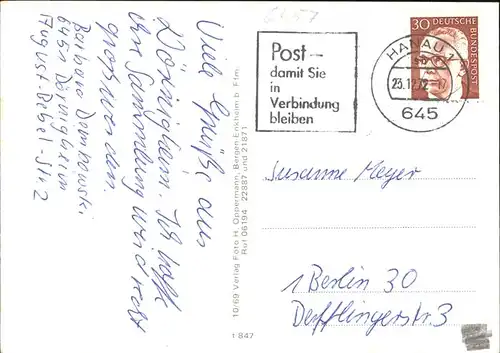 6457
Viele Grüße aus
Dörnigheim. Ich hoffe
Ihre Sammlung wird recht
groß werden.
Barbara
6451 Dörnigheim
August-Bebel-Str 2
10/69 Verlag Foto H. Oppermann, Bergen-Enkheim b. Ffm.
Ruf 06194 22887 und 21871
1 847
Post –
damit Sie
in
Verbindung
bleiben
HANAU 1
23.12.72-17
645
30 DEUTSCHE
BUNDESPOST
Susanne Meyer
1 Berlin 30
Derfflingerstr. 3